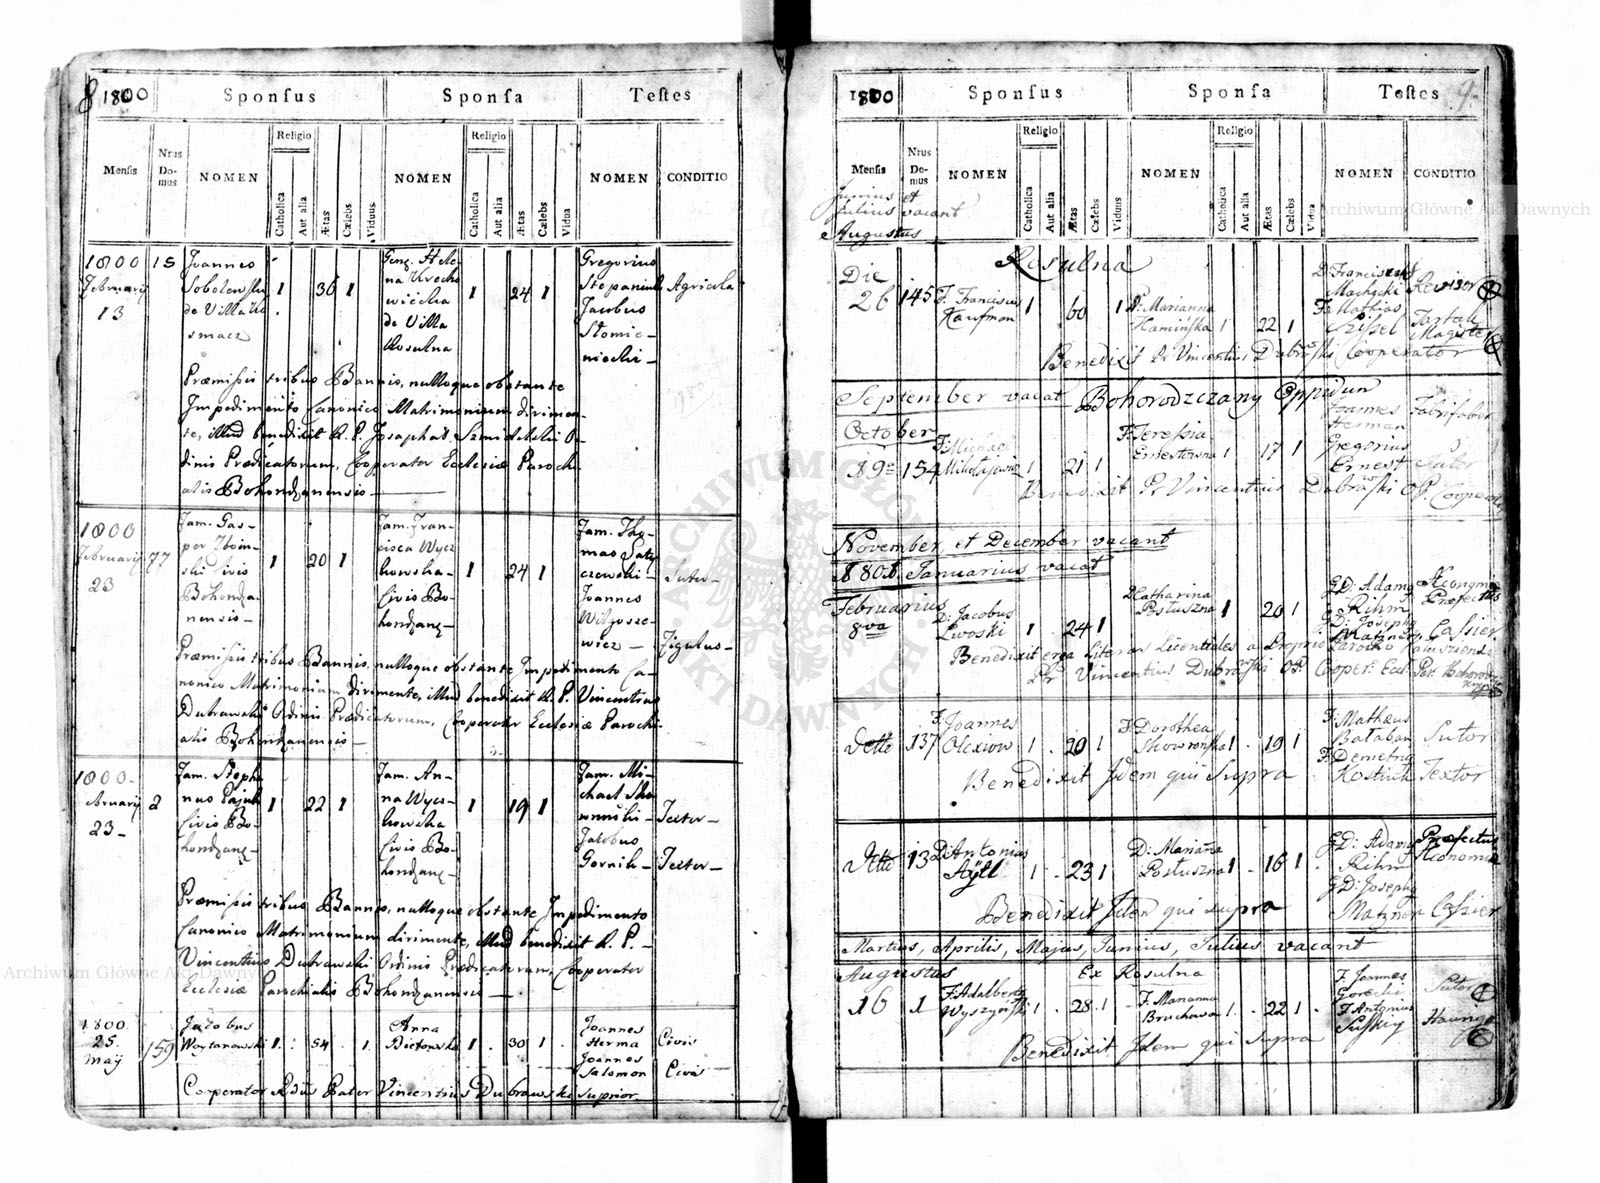 8 1800 Sponsus Sponsa Testes
Mensis Nrus Domus NOMEN Religio Catholica Aut alia Ætas Cælebs Viduus NOMEN Religio Catholica Aut alia Ætas Cælebs Vidua NOMEN CONDITIO
1800 February 13
15
Joannes
Sobolewski
de Villa
smacz
1 36 1
Hele-
na Krecho
wiecka
de Villa
Rosulna
1 24 1
Gregorius
Stepaniuk
Jacobus
Słomie-
niecki
Agricola
Præmissis tribus Bannis, nulloque obstante
Impedimento Canonico Matrimonium dirimen-
te, illud benedixit R. P. Josaphat Szmidecki O-
dinis Prædicatorum, Cooperator Ecclesiæ Parochi
alis Bohordzanensis
1800
February
23
77
Fam. Gas-
per Zboin-
ski Civis
Bohordza-
nensis
1 20 1
Fam. Fran-
cisca Wycz
kowska
Civis Bo-
hordzanę
1 24 1
Fam. Tho-
mas
czewski
Joannes
wicz
Sutor
Figulus
Præmissis tribus Bannis, nulloque obstante Impedimento Ca-
nonico Matrimonium dirimente, illud benedixit R. P. Vincentius
Dubrawski Ordinis Prædicatorum, Cooperator Ecclesiæ Parochi-
alis Bohordzanensis
1800
February
23
2
Fam. Stepha
nus
Civis Bo-
hordzanę
1 22 1
Fam. An-
na Wycz-
kowska
Civis Bo-
hordzanę
1 19 1
Fam. Mi-
chael Sko
wroński
Jacobus
Gornik
Textor
Textor
Præmissis tribus Bannis, nulloque obstante Impedimento
Canonico Matrimonium dirimente, illud benedixit R. P.
Vincentius Dubrawski Ordinis Prædicatorum, Cooperator
Ecclesiæ Parochialis Bohordzanensis
1800.
25.
Maÿ
159
Jacobus
Woytanowski
1 54 1
Anna
Bietowska
1 30 1
Joannes
Herma
Joannes
Salomon
Civis
Civis
Cooperator Rdus Pater Vincentius Dubrawski Suprior
1800 Sponsus Sponsa Testes 9.
Mensis Nrus Domus NOMEN Religio Catholica Aut alia Ætas Cælebs Viduus NOMEN Religio Catholica Aut alia Ætas Cælebs Vidua NOMEN CONDITIO
Junius et
Julius vacant
Augustus
Rosulna
Die
26
145
F. Franciscus
Kaufmon
1 60 1
D. Marianna
Kamińska
1 22 1
D. Franciscus
Machęcki
Mathias
Revisor
Magister
Benedixit Pr Vincentius Dubrawski Cooperator
September vacat Bohorodzczany Oppidum
October
19
154
F. Michael
Mikołajewicz
1 21 1
F. Teressia
Ernestowna
1 17 1
Joannes
Herman
Gregorius
Ernest
Fabrifaber
Sutor
Benedixit Pr Vincentius Dubrawski OP. Cooperator
November, et December vacant
1801. Januarius vacat
Februarius
8va
D. Jacobus
Lwoski
1 24 1
D. Catharina
Posłuszna
1 20 1
G D: Adamg
Rihm
G D: Josephg
Matzner
Præfectus
Cassier
Benedixit erga Literas Licentiales a Proprio Parocho
Pr Vincentius Dubrawski OP. Cooper: Eccl: Par:
Detto
137
F. Joannes
Olexiow
1 20 1
F. Dorothea
Skowrońska
1 19 1
F. Mathæus
Bałaban
F. Demetrig
Kostiuk
Sutor
Textor
Benedixit Idem qui Supra
Detto
13
D. Antonius
Aÿtl
1 23 1
D. Marianna
Posłuszna
1 16 1
G D: Adamg
Rihm
G D: Josephg
Matzner
Præfectus
Æconomiæ
Cassier
Benedixit Idem qui supra
Martius, Aprilis, Majus, Junius, Julius vacant
Augustus
16
1
Ex Rosulna
F. Adalbertg
Wyszyński
1 28 1
F. Marianna
Bruchowa
1 22 1
F. Joannes
Gorecki
F. Antonius
Sutor
Benedixit Idem qui Supra
ARCHIWUM GŁÓWNE AKT DAWNYCH
Archiwum Główne Akt Dawnych
Archiwum Główne Akt Dawnych